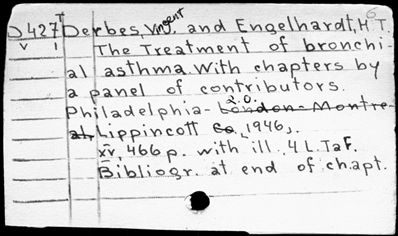 6
J427 Derbes, Vincent J. and Engelhardt, H T.
V I The Treatment of bronchi-
al asthma With chapters by
a panel of contributors.
Philadelphia - London - Montre-
al, Lippincott Co, 1946,.
xv, 466 p. with ill. 4 L. Ta F.
Bibliogr. at end of chapt.